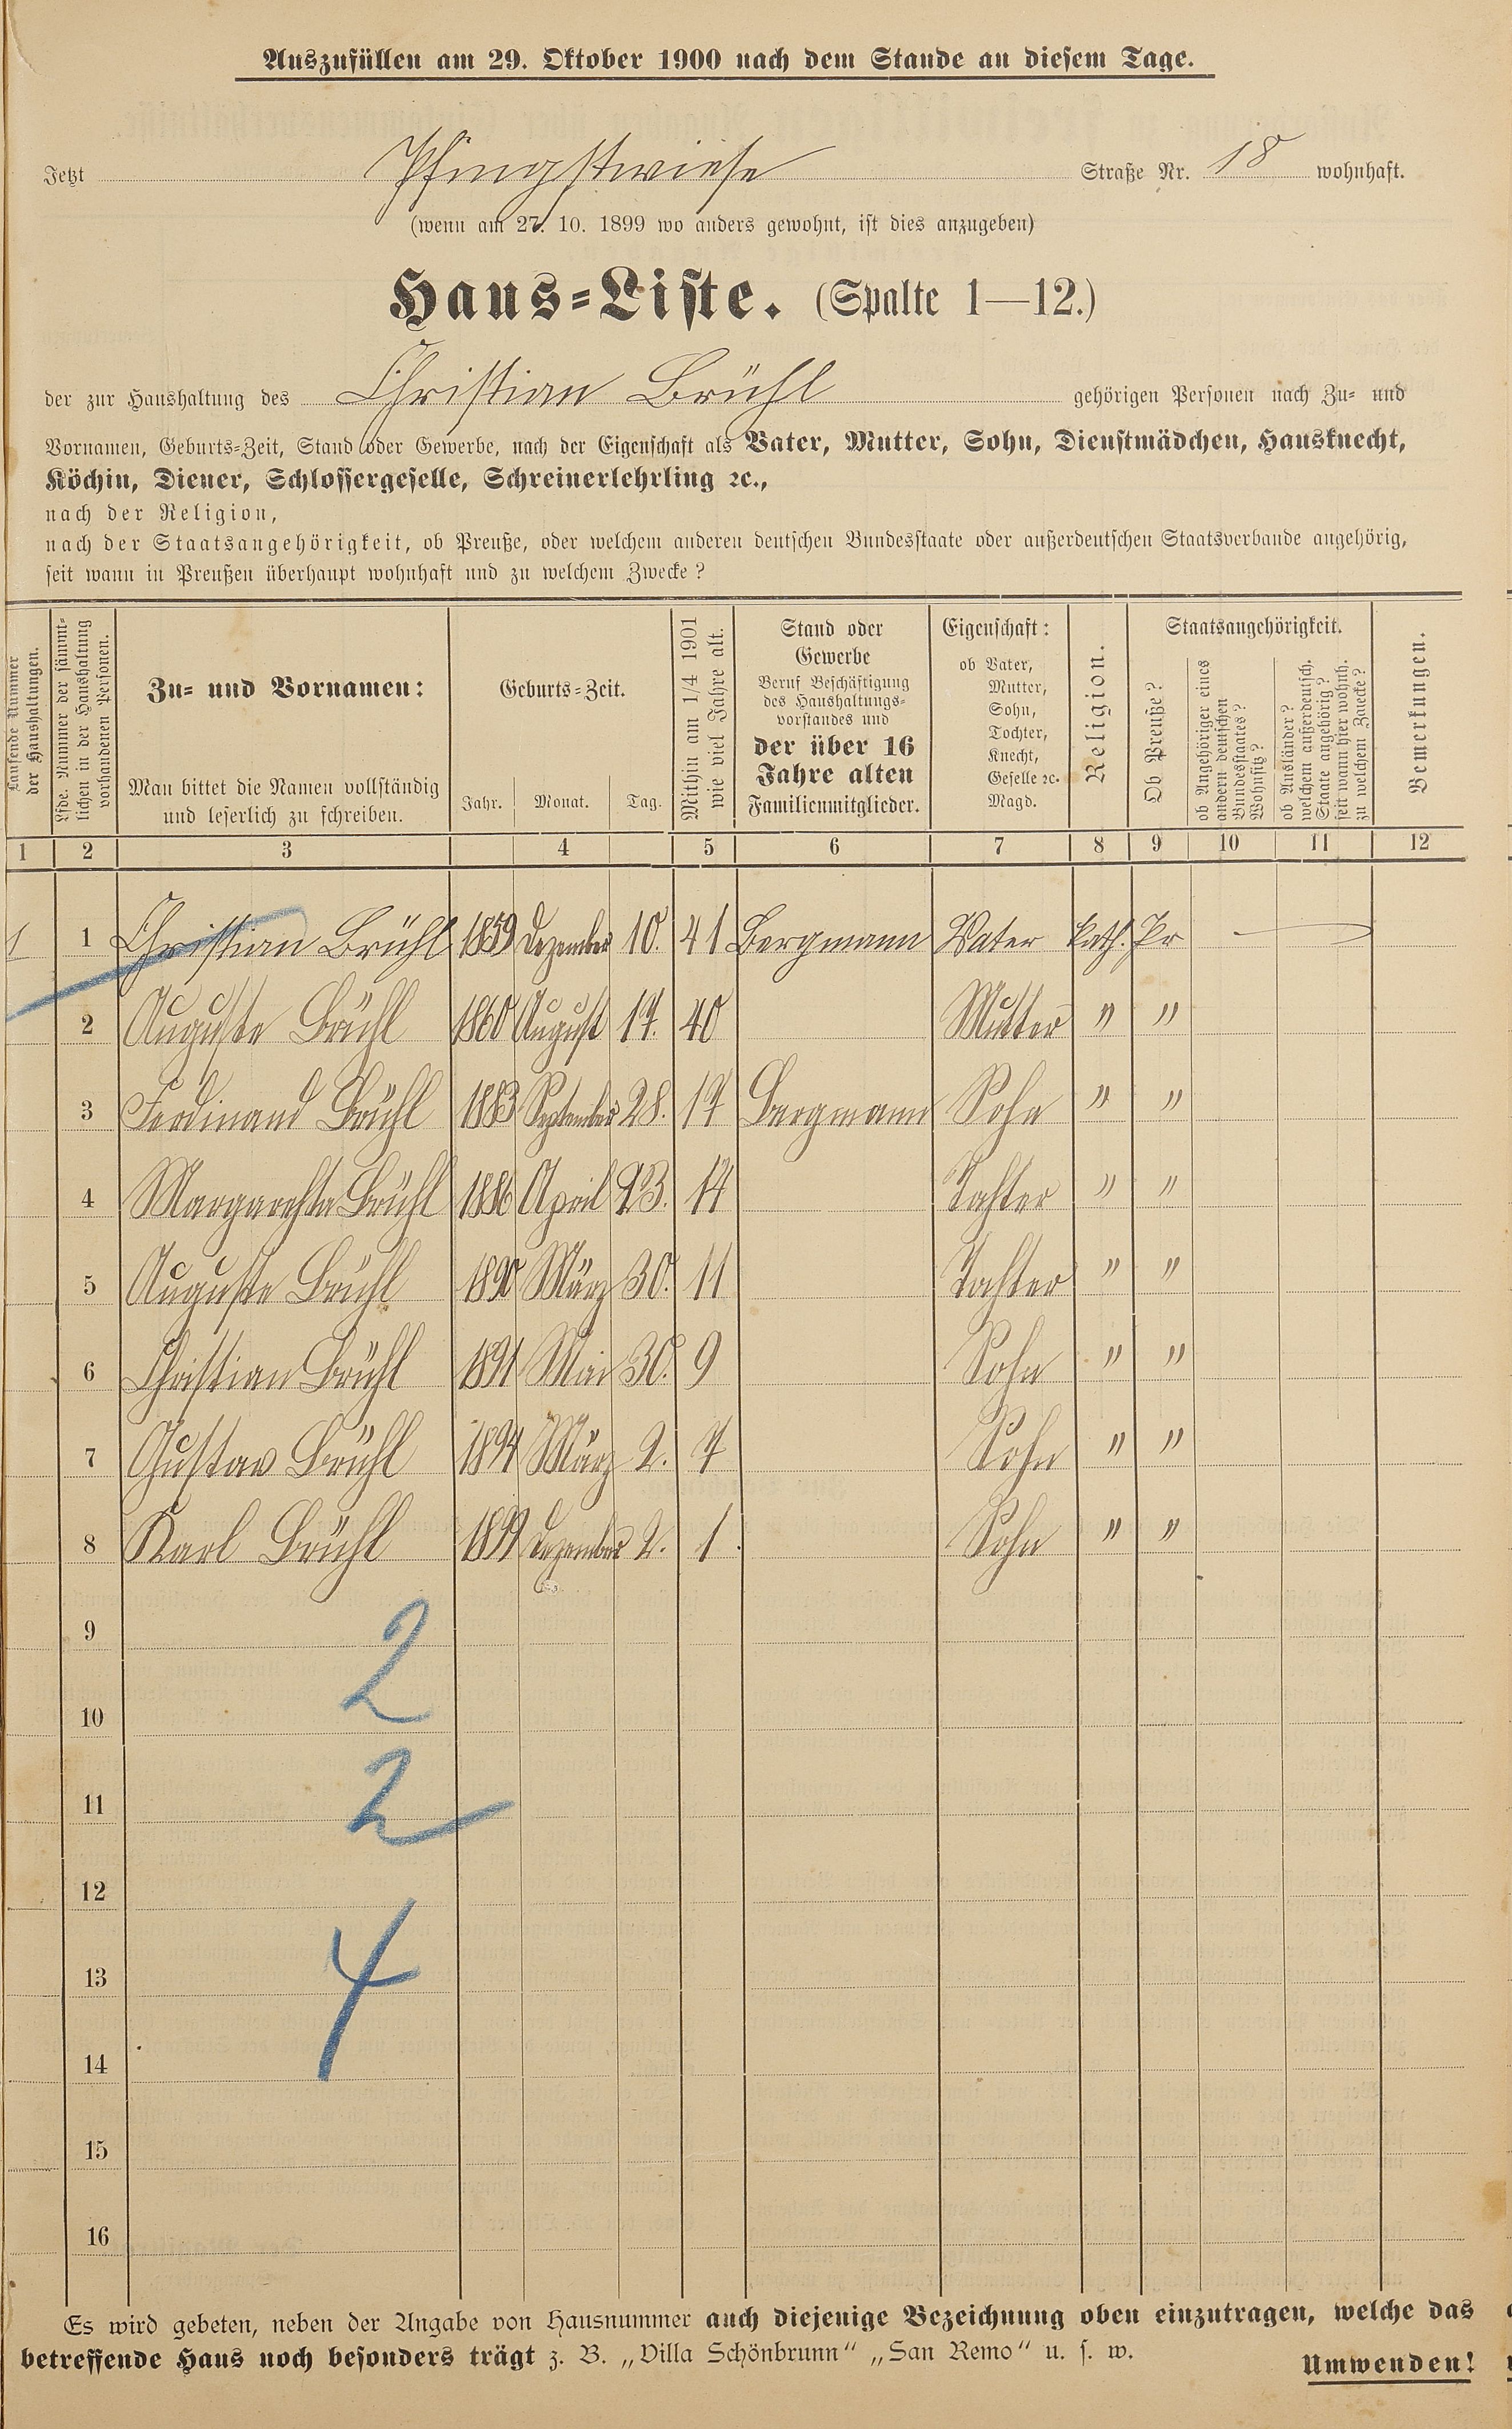 Auszufüllen am 29. Oktober 1900 nach dem Stande an diesem Tage.
Jetzt Pfingstwiese Straße Nr. 18 wohnhaft.
(wenn am 27. 10. 1899 wo anders gewohnt, ist dies anzugeben)
Haus-Liste. (Spalte 1—12.)
der zur Haushaltung des Christian Brühl gehörigen Personen nach Zu- und
Vornamen, Geburts-Zeit, Stand oder Gewerbe, nach der Eigenschaft als Vater, Mutter, Sohn, Dienstmädchen, Hausknecht,
Köchin, Diener, Schlossergeselle, Schreinerlehrling ꝛc.,
nach der Religion,
nach der Staatsangehörigkeit, ob Preuße, oder welchem anderen deutschen Bundesstaate oder außerdeutschen Staatsverbande angehörig,
seit wann in Preußen überhaupt wohnhaft und zu welchem Zwecke?
Laufende Nummer
der Haushaltungen.
Lfde. Nummer der sämmt-
lichen in der Haushaltung
vorhandenen Personen.
Zu- und Vornamen:
Man bittet die Namen vollständig
und leserlich zu schreiben.
Geburts-Zeit.
Jahr. Monat. Tag.
Mithin am 1/4 1901
wie viel Jahre alt.
Stand oder
Gewerbe
Beruf Beschäftigung
des Haushaltungs-
vorstandes und
der über 16
Jahre alten
Familienmitglieder.
Eigenschaft:
ob Vater,
Mutter,
Sohn,
Tochter,
Knecht,
Geselle ꝛc.
Magd.
Religion.
Staatsangehörigkeit.
Ob Preuße?
ob Angehöriger eines
andern deutschen
Bundesstaates?
Wohnsitz?
ob Ausländer?
welchem außerdeutsch.
Staate angehörig?
seit wann hier wohnh.
zu welchem Zwecke?
Bemerkungen.
1 2 3 4 5 6 7 8 9 10 11 12
1 1 Christian Brühl 1859 Dezember 10. 41 Bergmann Vater kath. Pr —
2 Auguste Brühl 1860 August 17. 40 Mutter " "
3 Ferdinand Brühl 1883 September 28. 17 Bergmann Sohn " "
4 Margarehta Brühl 1886 April 23. 14 Tahter " "
5 Auguste Brühl 1890 März 30. 11 Tahter " "
6 Christian Brühl 1891 Mai 30. 9 Sohn " "
7 Gustav Brühl 1894 März 2. 7 Sohn " "
8 Karl Brühl 1899 Dezember 2. 1 Sohn " "
9
2
10
11
2
12
13
4
14
15
16
Es wird gebeten, neben der Angabe von Hausnummer auch diejenige Bezeichnung oben einzutragen, welche das
betreffende Haus noch besonders trägt z. B. „Villa Schönbrunn“ „San Remo“ u. s. w.
Umwenden!